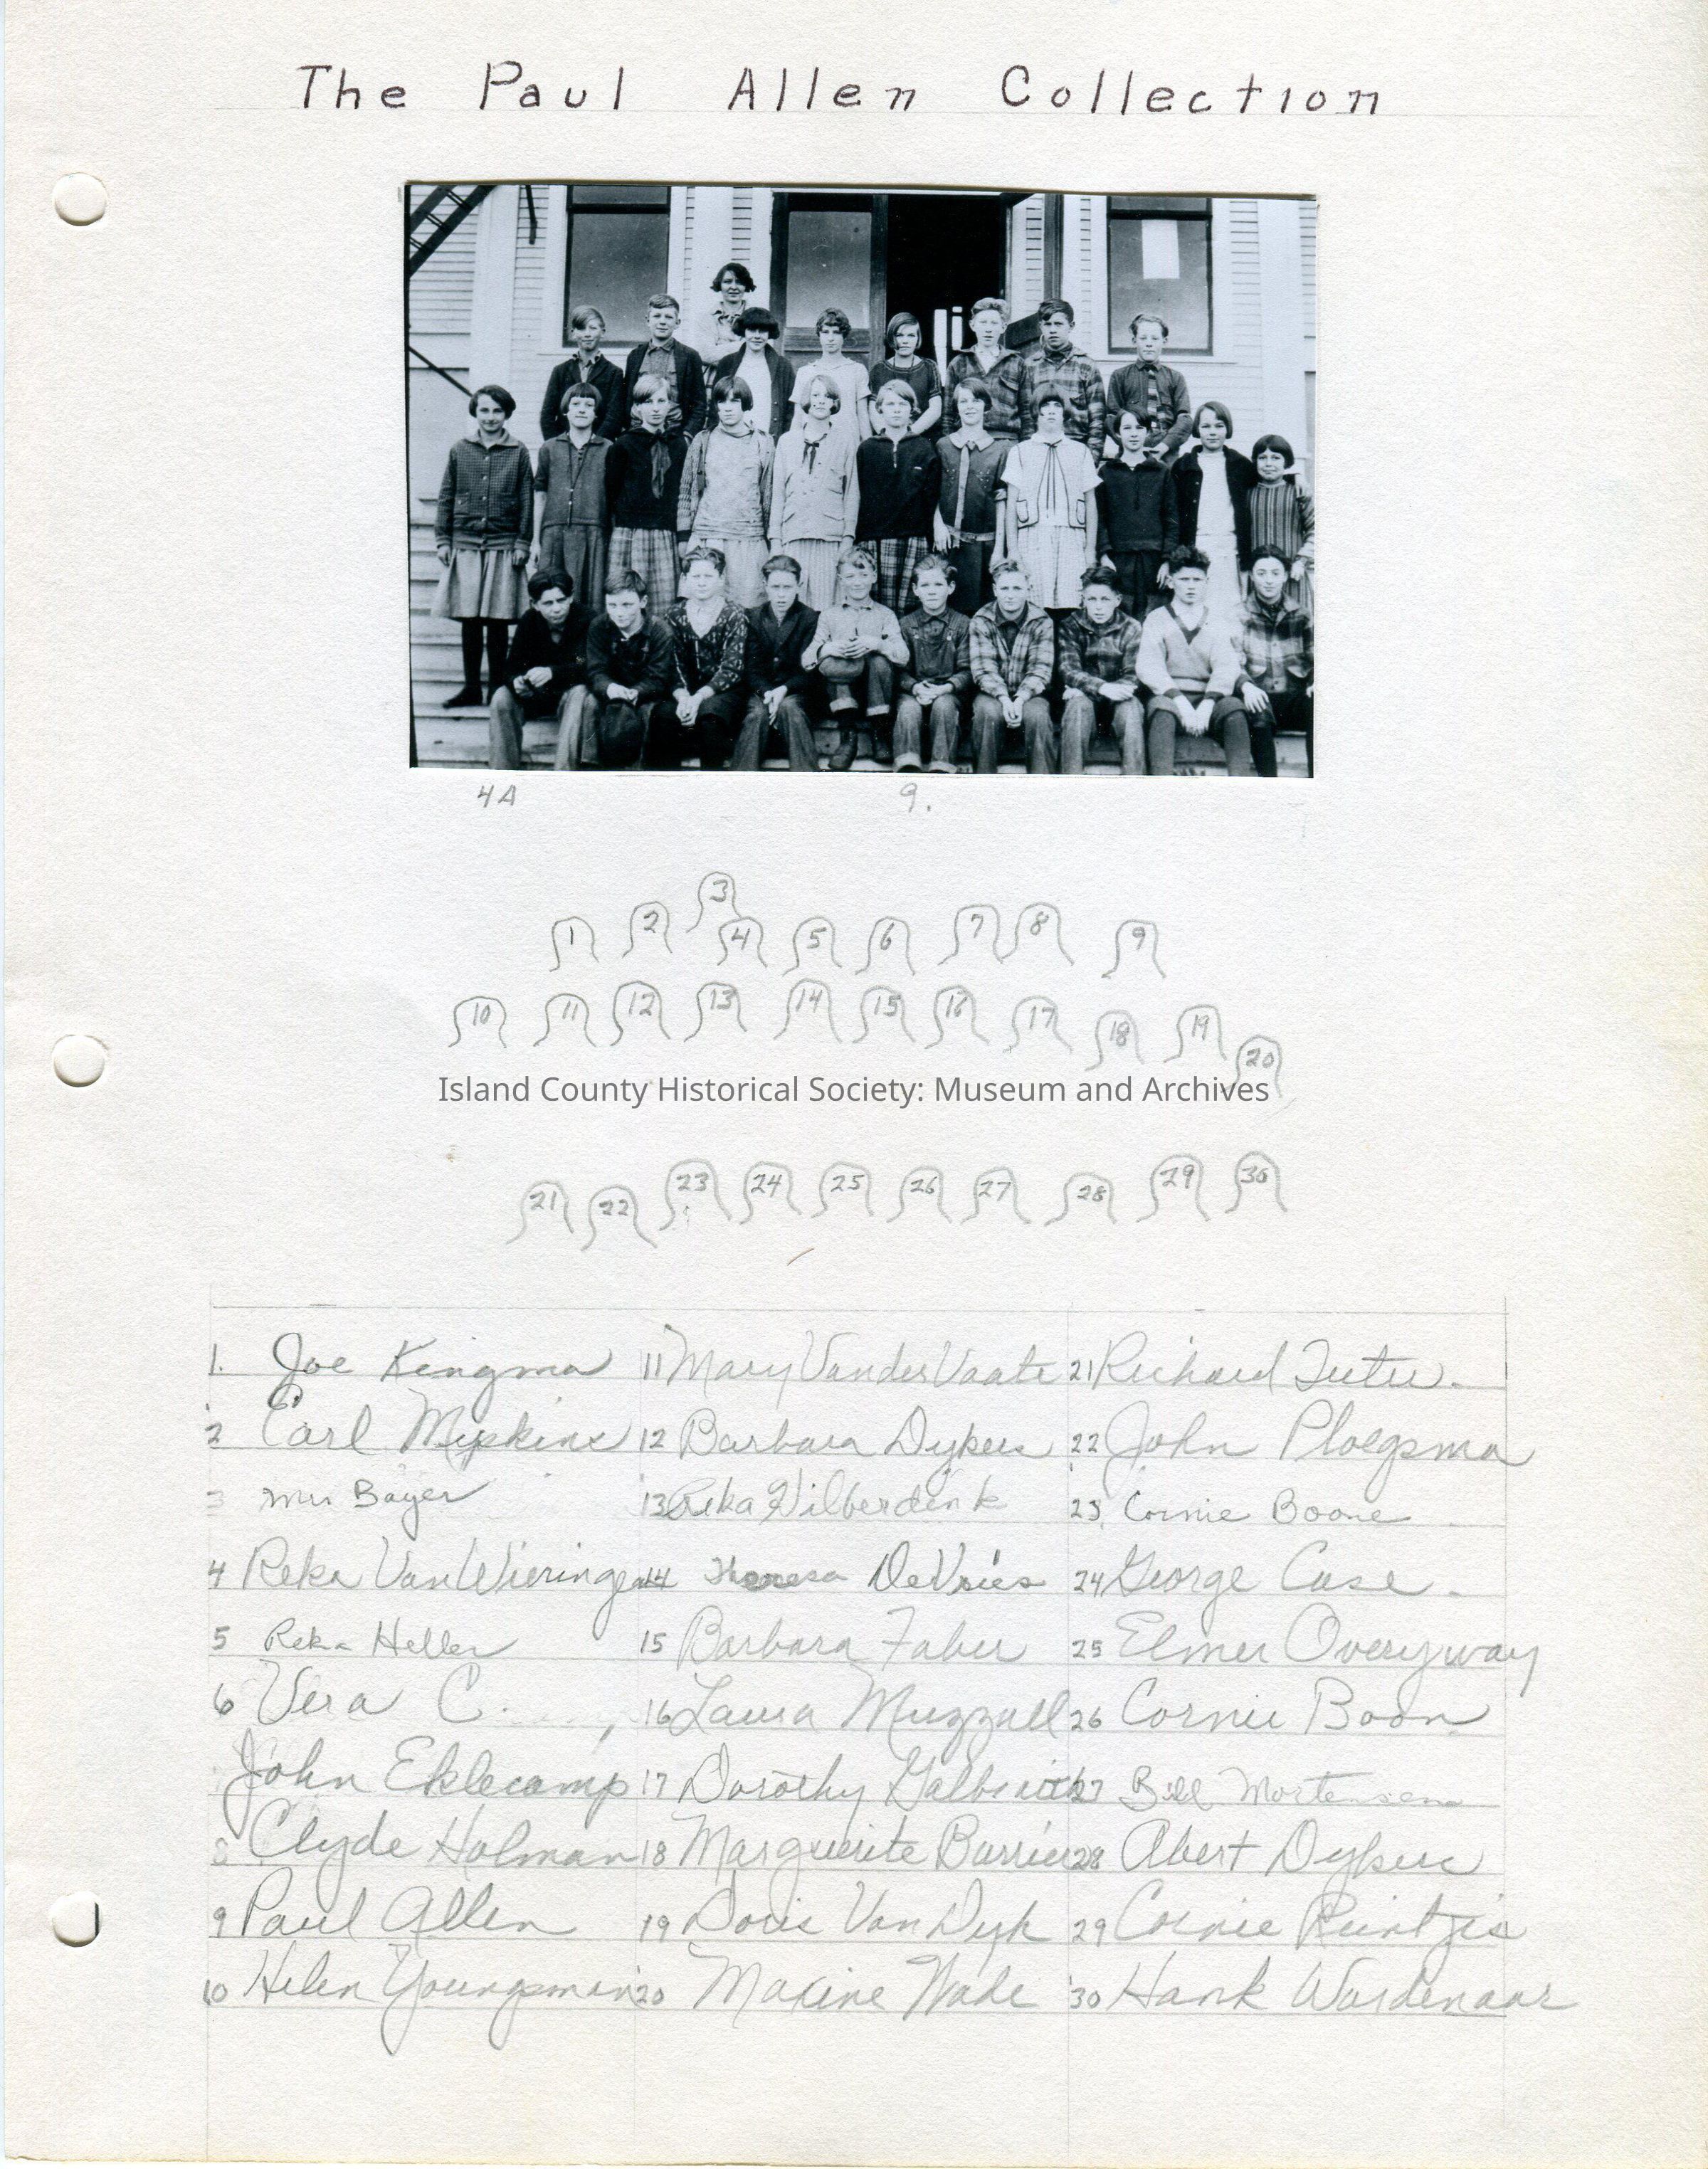 The Paul Allen Collection
4A 9.
1 2 3 4 5 6 7 8 9
10 11 12 13 14 15 16 17 18 19 20
Island County Historical Society: Museum and Archives
21 22 23 24 25 26 27 28 29 30
1. Joe Kingma 11 Mary VanderVaate 21 Richard Tuter.
2 Carl Mipkins 12 Barbara Dykers 22 John Ploegsma
3 Mrs Bayer 13 Reka Hilberdink 23. Cornie Boone
4 Reka VanWieringen 14 Theresa DeVries 24 George Case.
5 Reka Heller 15 Barbara Faber 25 Elmer Overyway
6 Vera C. 16 Laura Muzzall 26 Cornie Boon
John Eklecamp 17 Dorothy Galbraith 27 Bill Mortensen
8 Clyde Holman 18 Marguerite Burrier 28 Abert Dykers
9 Paul Allen 19 Doris Van Dyk 29 Cornie Rientjis
10 Helen Youngsman 20 Maxine Wade 30 Hank Wardenaar